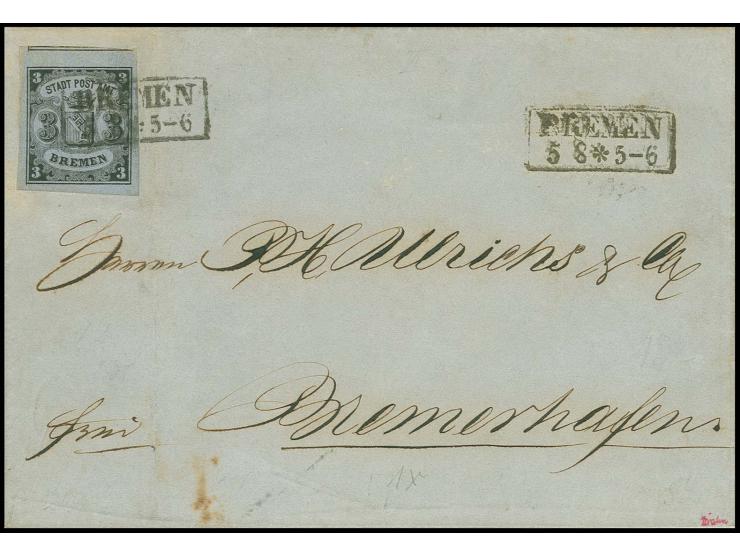 3 3
STADT POST AMT
3 3
BREMEN
3 3
BREMEN
* 5-6
BREMEN
5 8 * 5-6
Herren P. H. Ullrichs & Co
frei Bremerhafen.